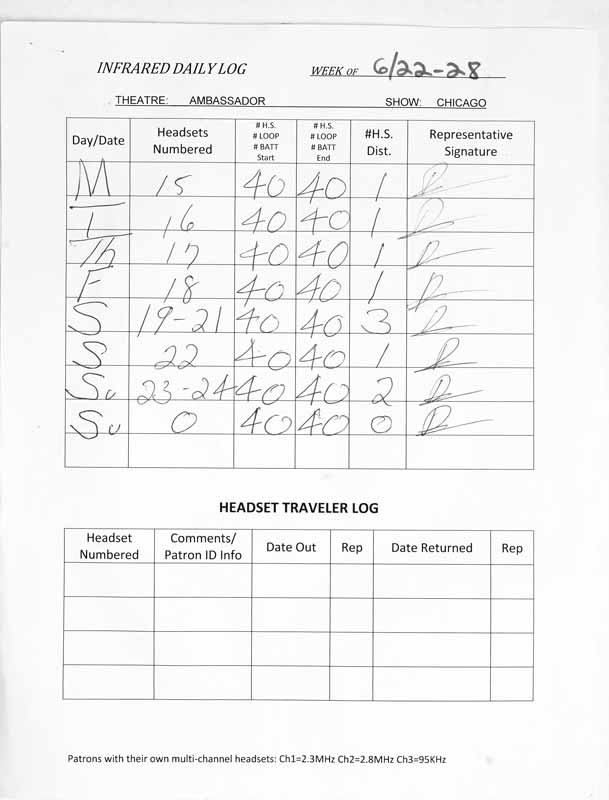 INFRARED DAILY LOG WEEK OF 6/22-28
THEATRE: AMBASSADOR SHOW: CHICAGO
Day/Date Headsets Numbered # H.S. # LOOP # BATT Start # H.S. # LOOP # BATT End #H.S. Dist. Representative Signature
M 15 40 40 1
T 16 40 40 1
Th 17 40 40 1
F 18 40 40 1
S 19-21 40 40 3
S 22 40 40 1
Su 23-24 40 40 2
Su 0 40 40 0
HEADSET TRAVELER LOG
Headset Numbered Comments/ Patron ID Info Date Out Rep Date Returned Rep
Patrons with their own multi-channel headsets: Ch1=2.3MHz Ch2=2.8MHz Ch3=95KHz